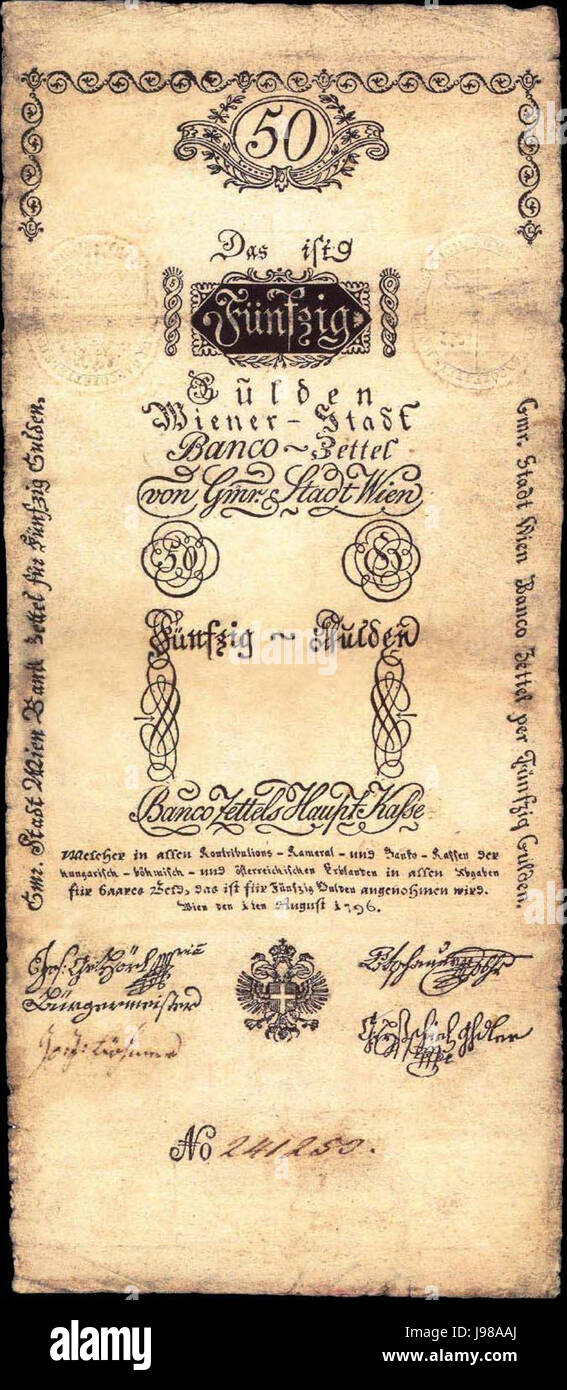 50
Das ist
Fünfzig
Gulden
Wiener-Stadt
Banco~Zettel
von Gmr. Stadt Wien
50
Fünfzig ~ Gulden
Banco Zettels Haupt Kasse
Welcher in allen Kontributions-Kameral-und Banko-Kassen der
Hungarisch-böhmisch-und österreichischen Erblanden in allen Abgaben
für baares Geld, das ist für Fünfzig Gulden angenohmen wird.
Wien den 1ten August 1796.
Gmr. Stadt Wien Bank Zettel für Fünfzig Gulden.
Gmr. Stadt Wien Banco Zettel per Fünfzig Gulden.
Bürgermeister
No 241250.
alamy
alamy
Image ID: J98AAJ
www.alamy.com